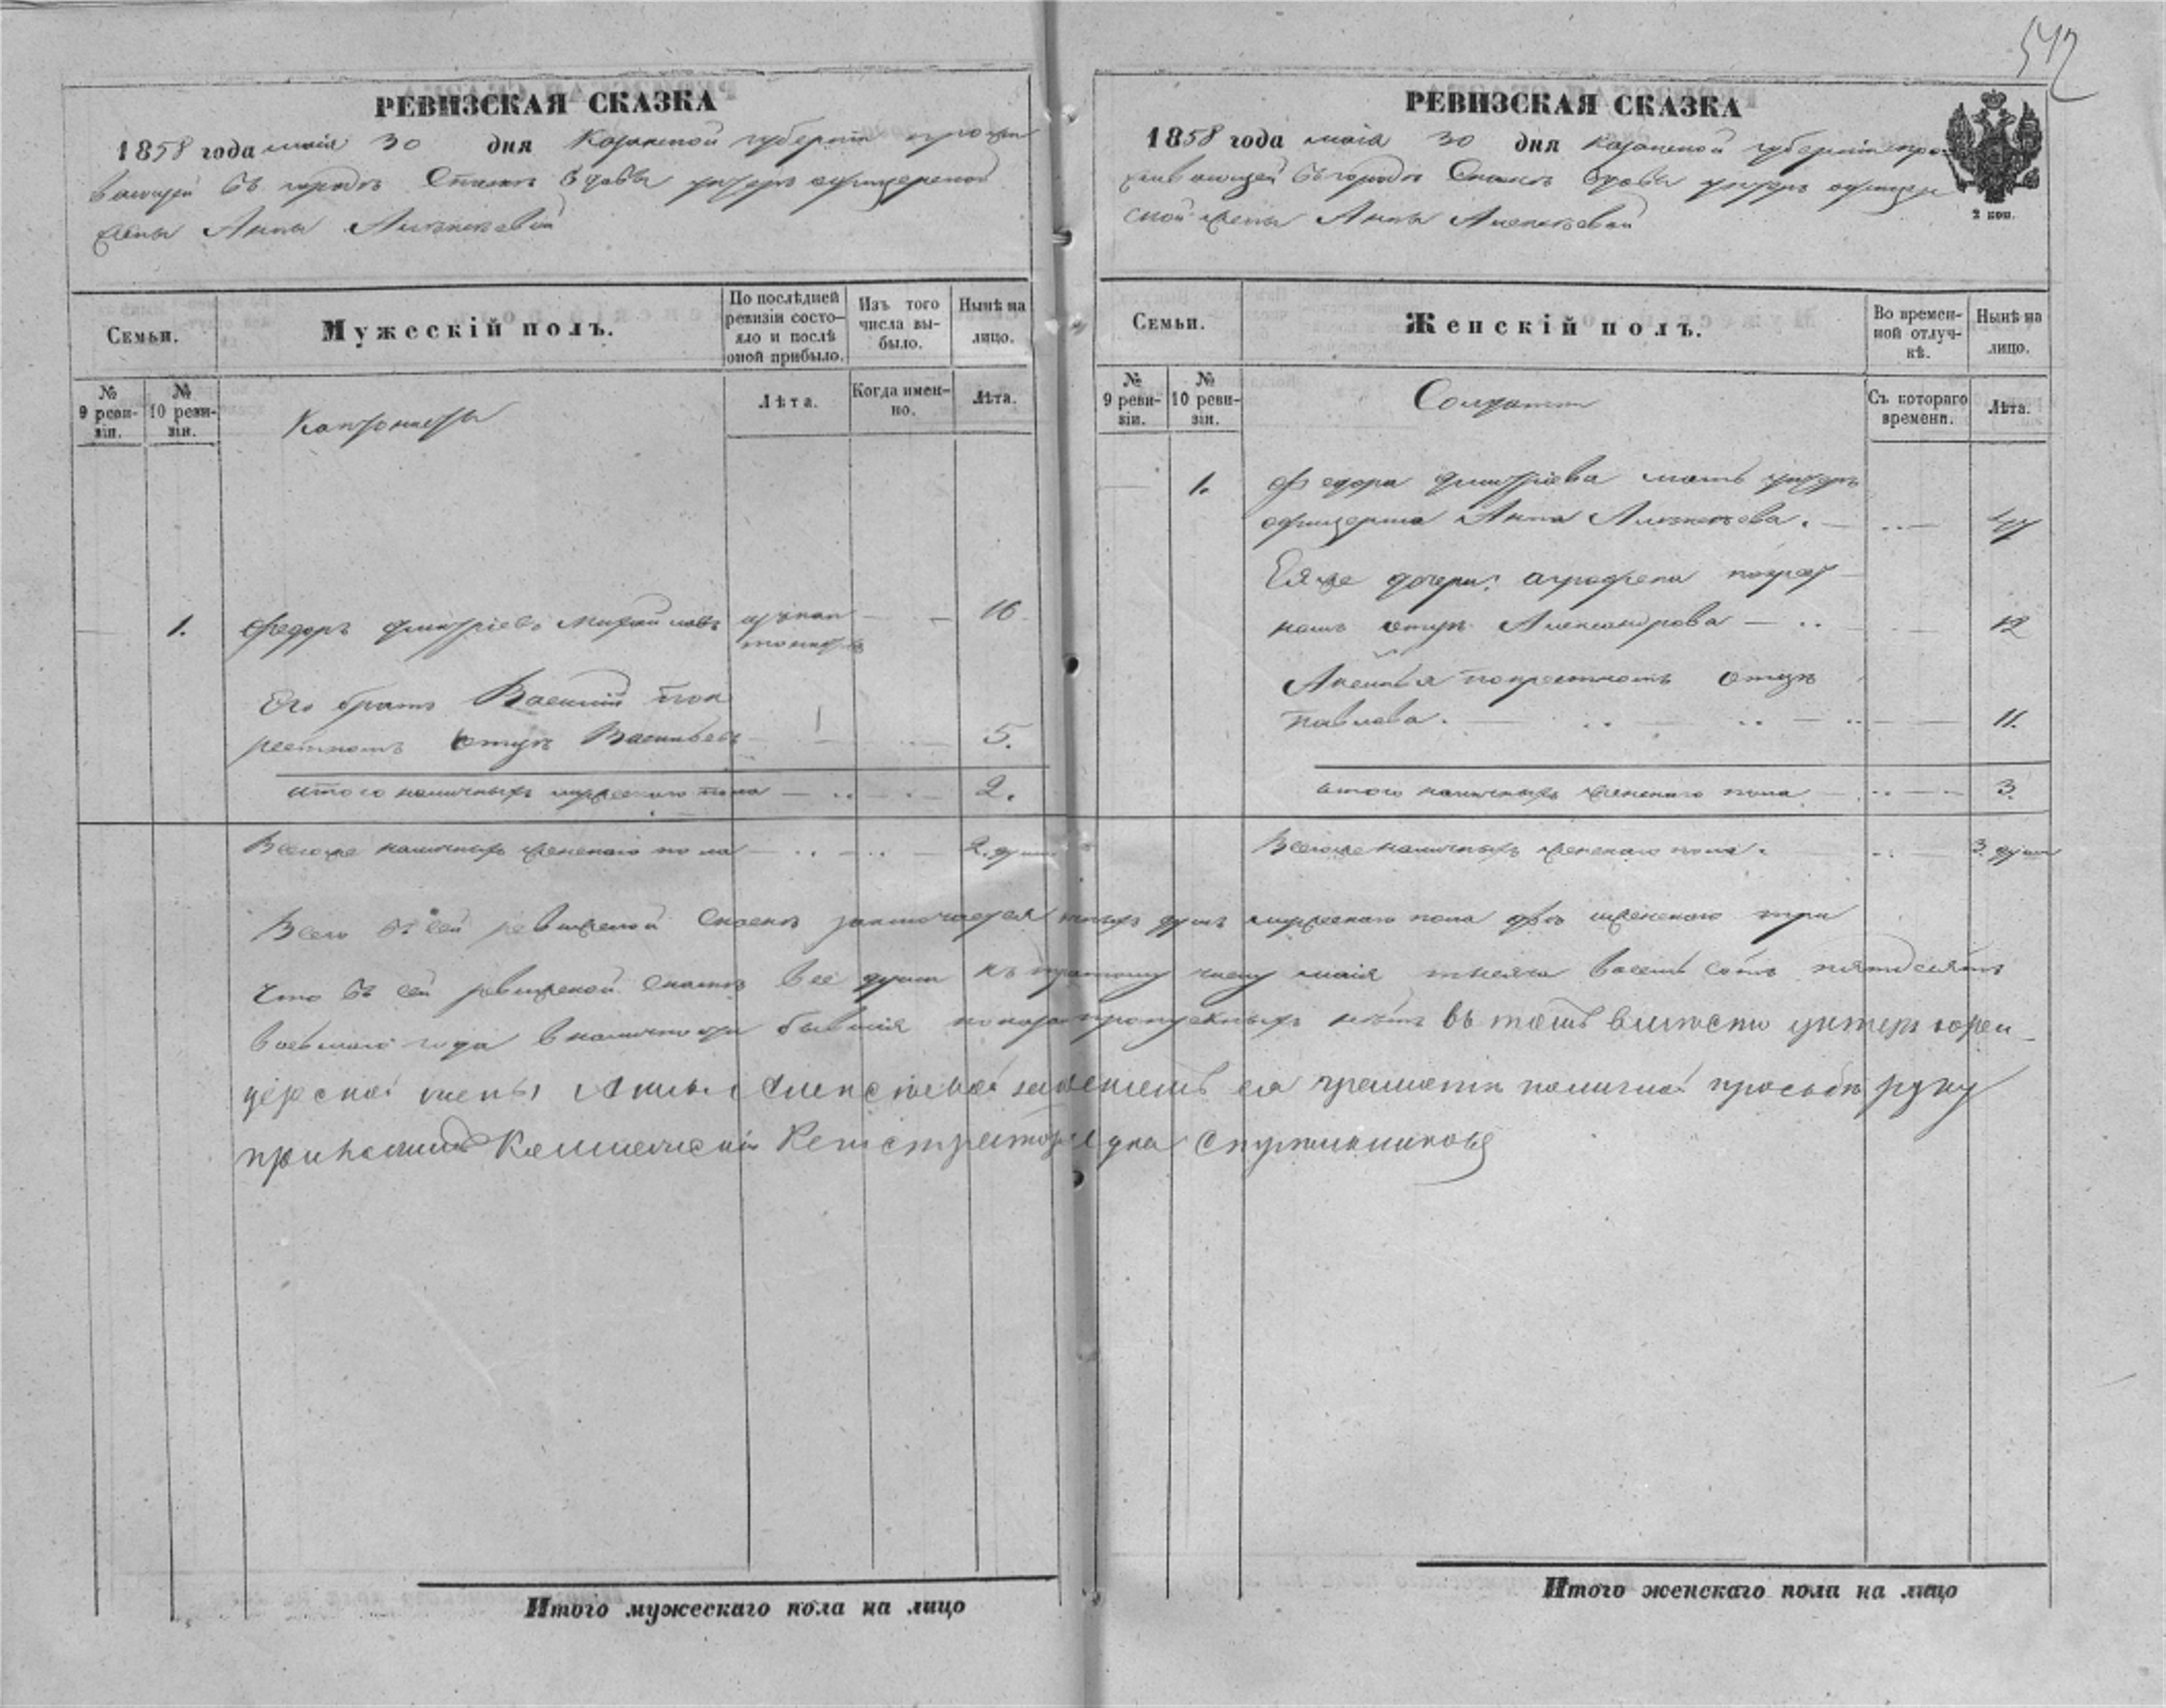 542
РЕВИЗСКАЯ СКАЗКА
1858 года маія 30 дня Казанской губерніи прожи
вающей въ городѣ Спаскѣ вдовы унтеръ офицерской
жены Анны Алексѣевой
Семьи.
Мужескій полъ.
По послѣдней ревизіи состояло и послѣ оной прибыло.
Изъ того числа выбыло.
Нынѣ на лицо.
№ 9 ревизіи.
№ 10 ревизіи.
Кантонисты
Лѣта.
Когда именно.
Лѣта.
1. Федоръ Дмитріевъ Михайловъ 16
Его братъ Василій покрестномъ отцѣ Васильевъ 5.
итого наличныхъ мужескаго пола 2.
Всегоже наличныхъ женскаго пола 2. души
РЕВИЗСКАЯ СКАЗКА
1858 года маія 30 дня Казанской губерніи про
живающей въ городѣ Спаскѣ вдовы унтеръ офицер
ской жены Анны Алексѣевой
2 коп.
Семьи.
Женскій полъ.
Во временной отлучкѣ.
Нынѣ на лицо.
№ 9 ревизіи.
№ 10 ревизіи.
Солдатки
Съ котораго времени.
Лѣта.
1. Федора Дмитріева мать унтеръ
офицерша Анна Алексѣева. 47
Ея же дочери: Аграфена покрест
номъ отцѣ Александрова 12
Аксинья покрестномъ отцѣ
Павлова. 11.
итого наличныхъ женскаго пола 3.
Всегоже наличныхъ женскаго пола. 3. души
Всего въ сей ревизской сказкѣ заключается душъ мужескаго пола двѣ женскаго три
Что въ сей ревизской сказкѣ все души къ числу маія тысяча восемь сотъ пятдесятъ
восьмаго года въ наличности бывшія показаны пропускныхъ нѣтъ въ томъ вмѣсто унтеръ офи
церской жены Анны Алексѣевой за неименіемъ ея грамоте по личной просьбѣ руку
приложилъ Коллежскій Регистраторъ
Итого мужескаго пола на лицо
Итого женскаго пола на лицо